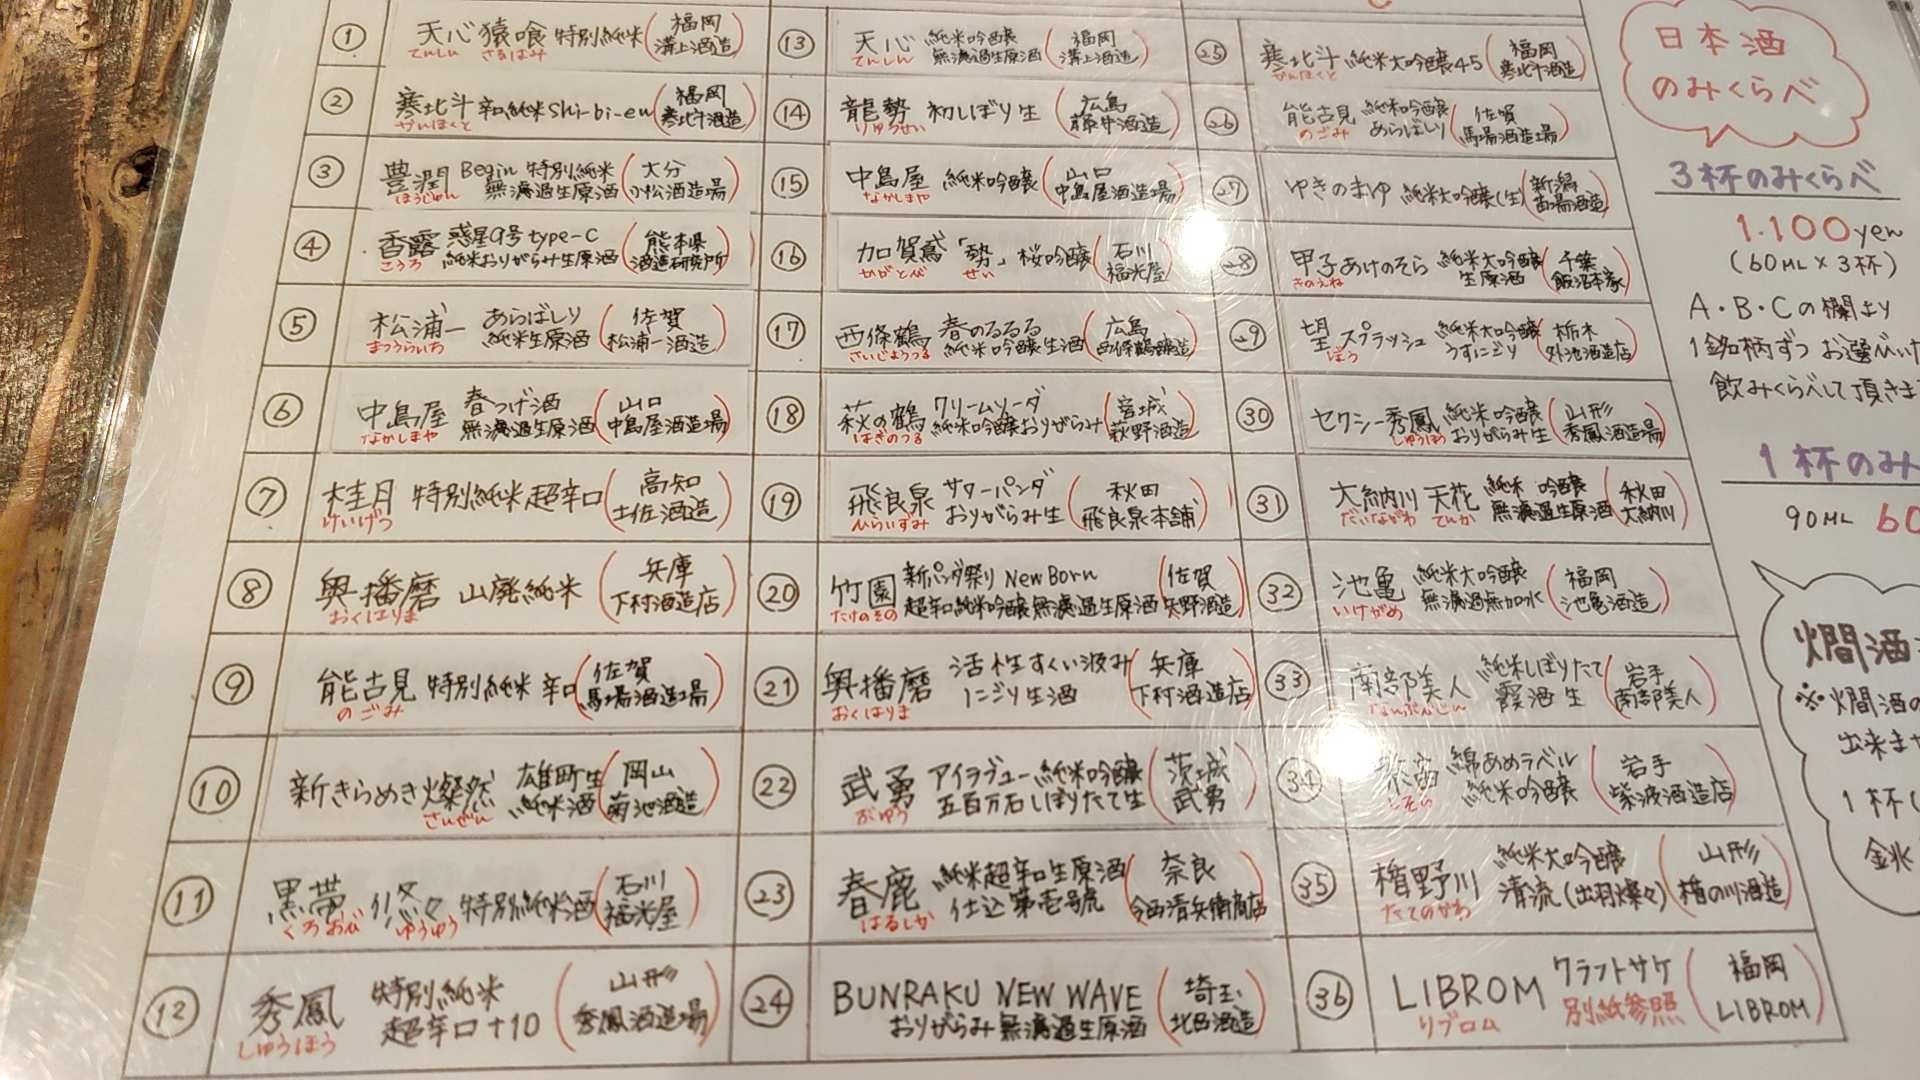 ① 天心 猿喰 特別純米 (福岡 溝上酒造)
てんしん さるはみ
② 寒北斗 辛口純米 shi-bi-en (福岡 寒北斗酒造)
かんほくと
③ 豊潤 Begin 特別純米 (大分
ほうじゅん 無濾過生原酒 小松酒造場)
④ 香露 惑星9号 type-C (熊本県
こうろ 純米おりがらみ生原酒 酒造研究所)
⑤ 松浦一 あらばしり (佐賀
まつうらいち 純米生原酒 松浦一酒造)
⑥ 中島屋 春つげ酒 (山口
なかしまや 無濾過生原酒 中島屋酒造場)
⑦ 桂月 特別純米 超辛口 (高知 土佐酒造)
けいげつ
⑧ 奥播磨 山廃純米 (兵庫 下村酒造店)
おくはりま
⑨ 能古見 特別純米 辛口 (佐賀 馬場酒造場)
のごみ
⑩ 新きらめき燦然 雄町生 (岡山
さんぜん 純米酒 菊池酒造)
⑪ 黒帯 悠々 特別純米酒 (石川 福光屋)
くろおび ゆうゆう
⑫ 秀鳳 特別純米 (山形
しゅうほう 超辛口+10 秀鳳酒造場)
⑬ 天心 純米吟醸 (福岡
てんしん 無濾過生原酒 溝上酒造)
⑭ 龍勢 初しぼり生 (広島 藤井酒造)
りゅうせい
⑮ 中島屋 純米吟醸 (山口 中島屋酒造場)
なかしまや
⑯ 加賀鳶「勢」桜吟醸 (石川 福光屋)
かがとび せい
⑰ 西條鶴 春のるるる (広島
さいじょうつる 純米吟醸生酒 西條鶴醸造)
⑱ 萩の鶴 クリームソーダ (宮城
はぎのつる 純米吟醸おりがらみ 萩野酒造)
⑲ 飛良泉 サワーパンダ (秋田
ひらいずみ おりがらみ生 飛良泉本舗)
⑳ 竹園 新パンダ祭り New Born (佐賀
たけのその 超辛口純米吟醸無濾過生原酒 矢野酒造)
㉑ 奥播磨 活性すくい汲み (兵庫
おくはりま にごり生酒 下村酒造店)
㉒ 武勇 アイラブユー 純米吟醸 (茨城
ぶゆう 五百万石しぼりたて生 武勇)
㉓ 春鹿 純米超辛口生原酒 (奈良
はるしか 仕込第壱号 今西清兵衛商店)
㉔ BUNRAKU NEW WAVE (埼玉
おりがらみ 無濾過生原酒 北西酒造)
㉕ 寒北斗 純米大吟醸45 (福岡 寒北斗酒造)
かんほくと
㉖ 能古見 純米吟醸 (佐賀
のごみ あらばしり 馬場酒造場)
㉗ ゆきのまゆ 純米大吟醸(生) (新潟 苗場酒造)
㉘ 甲子 あけのそら 純米大吟醸 (千葉
きのえね 生原酒 飯沼本家)
㉙ 望 スプラッシュ 純米大吟醸 (栃木
ぼう うすにごり 外池酒造店)
㉚ セクシー秀鳳 純米吟醸 (山形
しゅうほう おりがらみ生 秀鳳酒造場)
㉛ 大納川 天花 純米吟醸 (秋田
だいながわ てんか 無濾過生原酒 大納川)
㉜ 池亀 純米大吟醸 (福岡
いけがめ 無濾過無加水 池亀酒造)
㉝ 南部美人 純米しぼりたて (岩手
なんぶびじん 霞酒 生 南部美人)
㉞ 紫宙 綿あめラベル (岩手
しそら 純米吟醸 紫波酒造店)
㉟ 楯野川 純米大吟醸 (山形
たてのかわ 清流(出羽燦々) 楯の川酒造)
㊱ LIBROM クラフトサケ (福岡
リブロム 別紙参照 LIBROM)
日本酒
のみくらべ
3杯のみくらべ
1.100yen
(60ML×3杯)
A・B・Cの欄より
1銘柄ずつお選びいた
飲みくらべして頂きま
1杯のみ
90ML 60
燗酒
※燗酒の
出来ま
1杯